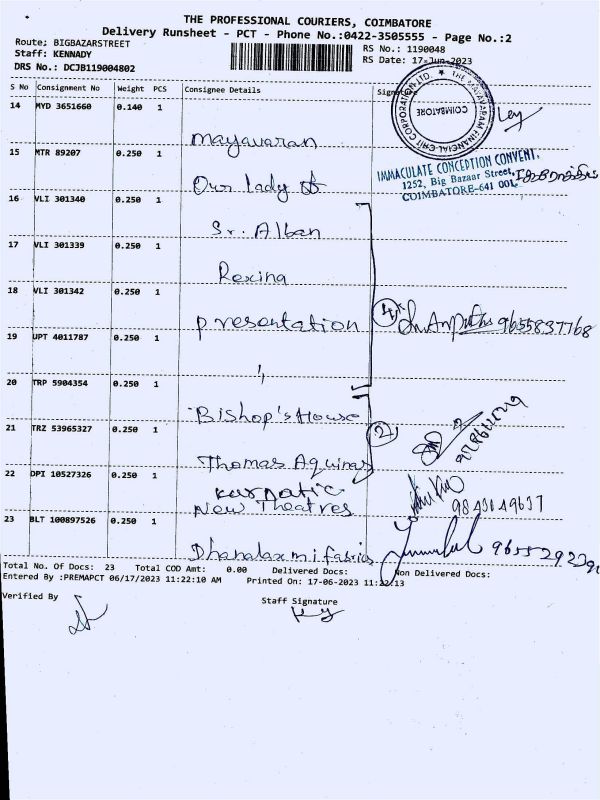 THE PROFESSIONAL COURIERS, COIMBATORE
Delivery Runsheet - PCT - Phone No.:0422-3505555 - Page No.:2
Route; BIGBAZARSTREET
Staff: KENNADY
DRS No.: DCJB119004802
RS No.: 1190048
RS Date: 17-Jun-2023
S No Consignment No Weight PCS Consignee Details Signature
14 MYD 3651660 0.140 1 mayavaran
THE MAYAVARAM FINANCIAL CHIT CORPORATION LTD.
COIMBATORE
15 MTR 89207 0.250 1 Our lady of
IMMACULATE CONCEPTION CONVENT,
1252, Big Bazaar Street,
COIMBATORE-641 001.
16 VLI 301340 0.250 1 Sr. Alban
17 VLI 301339 0.250 1 Rexina
18 VLI 301342 0.250 1 presentation 4 9655837768
19 UPT 4011787 0.250 1 "
20 TRP 5904354 0.250 1 Bishop's House
21 TRZ 53965327 0.250 1 Thomas Aquinas 2
22 DPI 10527326 0.250 1 karnatic
New Theatres
23 BLT 100897526 0.250 1 Dhanalaxmi fabrics
Total No. Of Docs: 23 Total COD Amt: 0.00 Delivered Docs: Non Delivered Docs:
Entered By :PREMAPCT 06/17/2023 11:22:10 AM Printed On: 17-06-2023 11:22:13
Verified By
Staff Signature